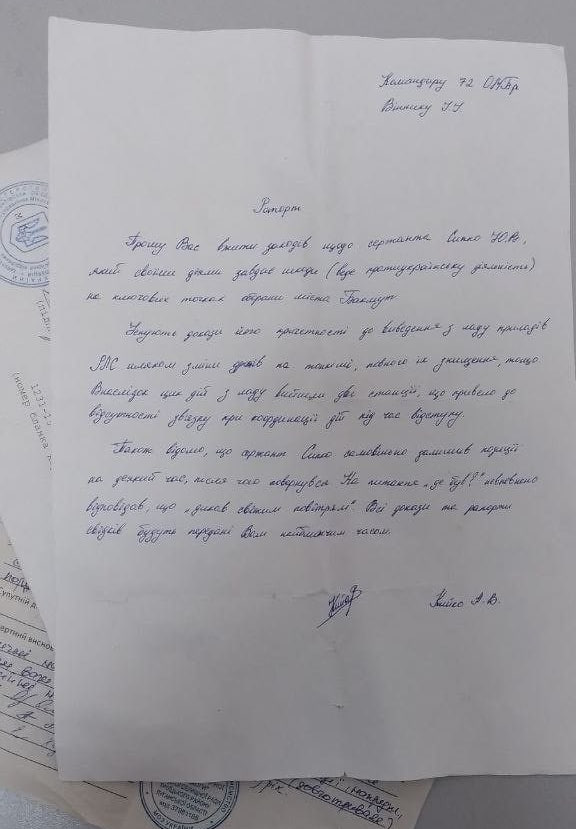 Командиру 72 ОМБр
Віннику І.І.
Рапорт
Прошу Вас вжити заходів щодо сержанта Сипко Ю.В,
який своїми діями завдає шкоди (веде протиукраїнську діяльність)
на ключових точках оборони міста Бахмут.
Існують докази його причетності до виведення з ладу приладів
шляхом зміни на тонкіші, певного їх знищення, тощо
Внаслідок цих дій з ладу вийшли дві станції, що привело до
відсутності звязку при координації дій під час відступу.
Також відомо, що сержант Сипко самовільно залишив позиції
на деякий час, після чого повернувся На питання „де був?" невпевнено
відповідав, що „дихав свіжим повітрям" Всі докази та рапорти
свідків будуть передані Вам найближчим часом.
А. В.